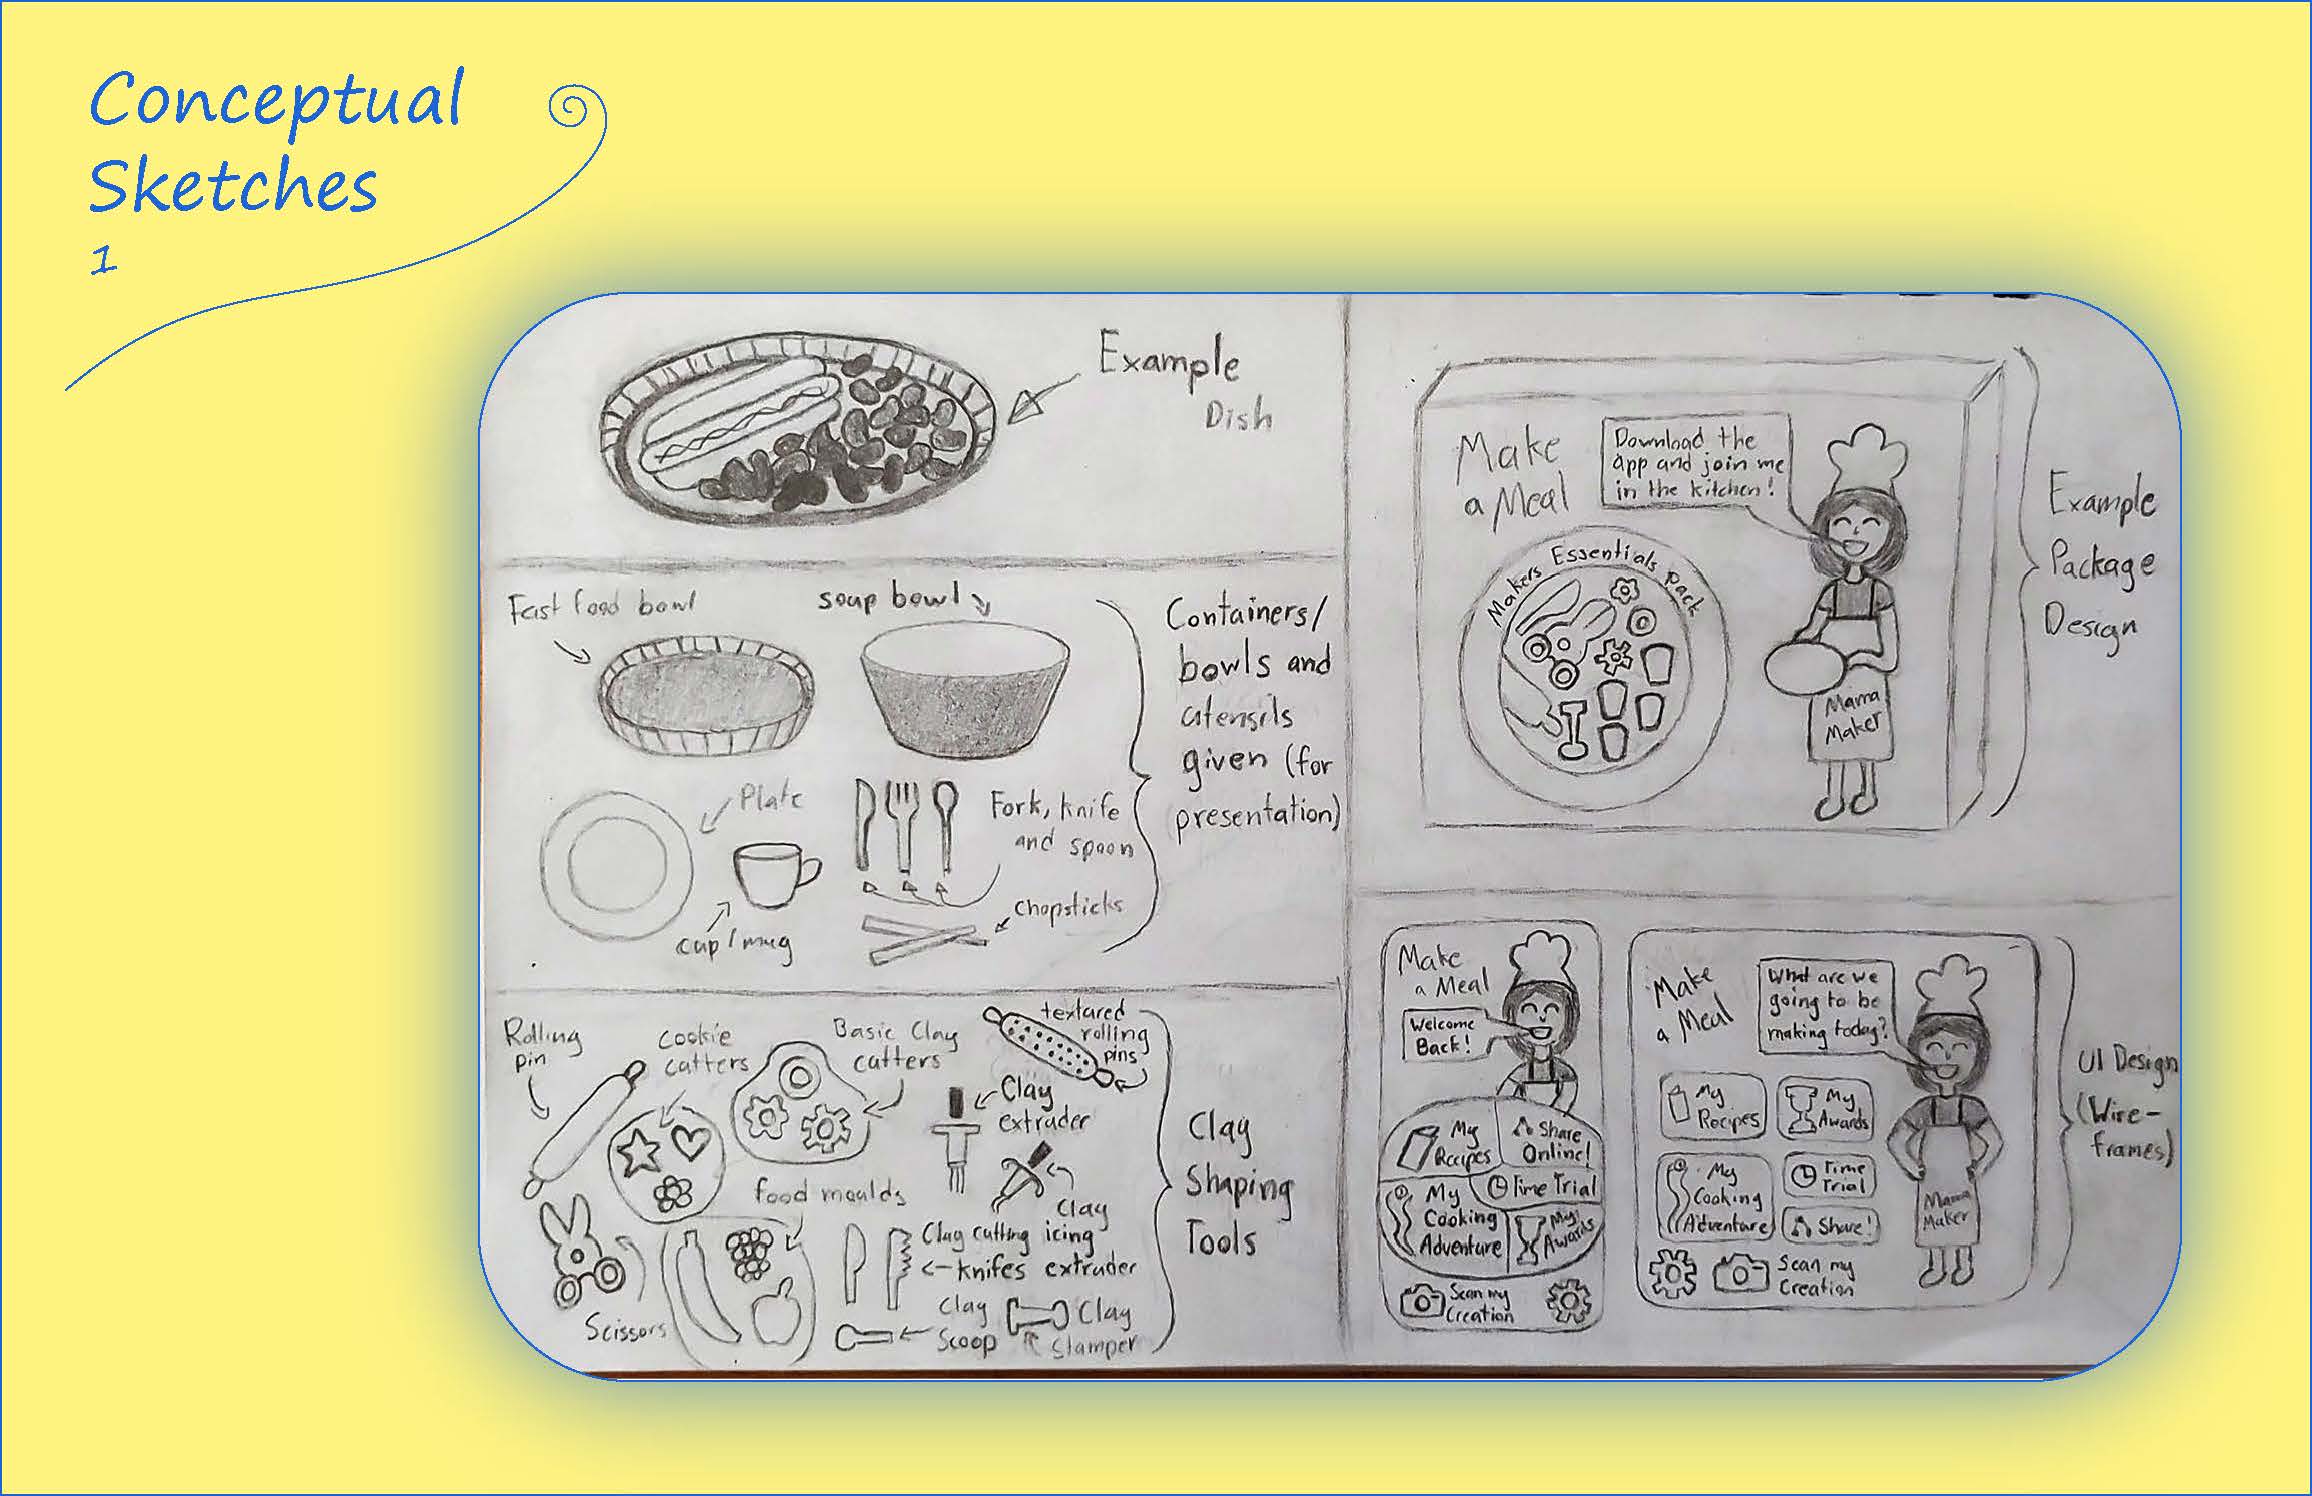 Conceptual
Sketches
1
Example
Dish
Fast food bowl
soup bowl
Containers/
bowls and
utensils
given (for
presentation)
Plate
Fork, knife
and spoon
cup/mug
chopsticks
Rolling
pin
cookie
cutters
Basic Clay
cutters
textured
rolling
pins
Clay
extruder
food moulds
Clay
icing
extruder
Clay cutting
knifes
Scissors
Clay
Scoop
Clay
Stamper
Clay
Shaping
Tools
Make
a Meal
Download the
app and join me
in the kitchen!
Makers Essentials Pack
Mama
Maker
Example
Package
Design
Make
a Meal
Welcome
Back!
My
Recipes
Share
Online!
Time Trial
My
Cooking
Adventure
My
Awards
Scan my
Creation
Make
a Meal
What are we
going to be
making today?
My
Recipes
My
Awards
My
Cooking
Adventure
Time
Trial
Share!
Scan my
Creation
Mama
Maker
UI Design
(Wire-
frames)